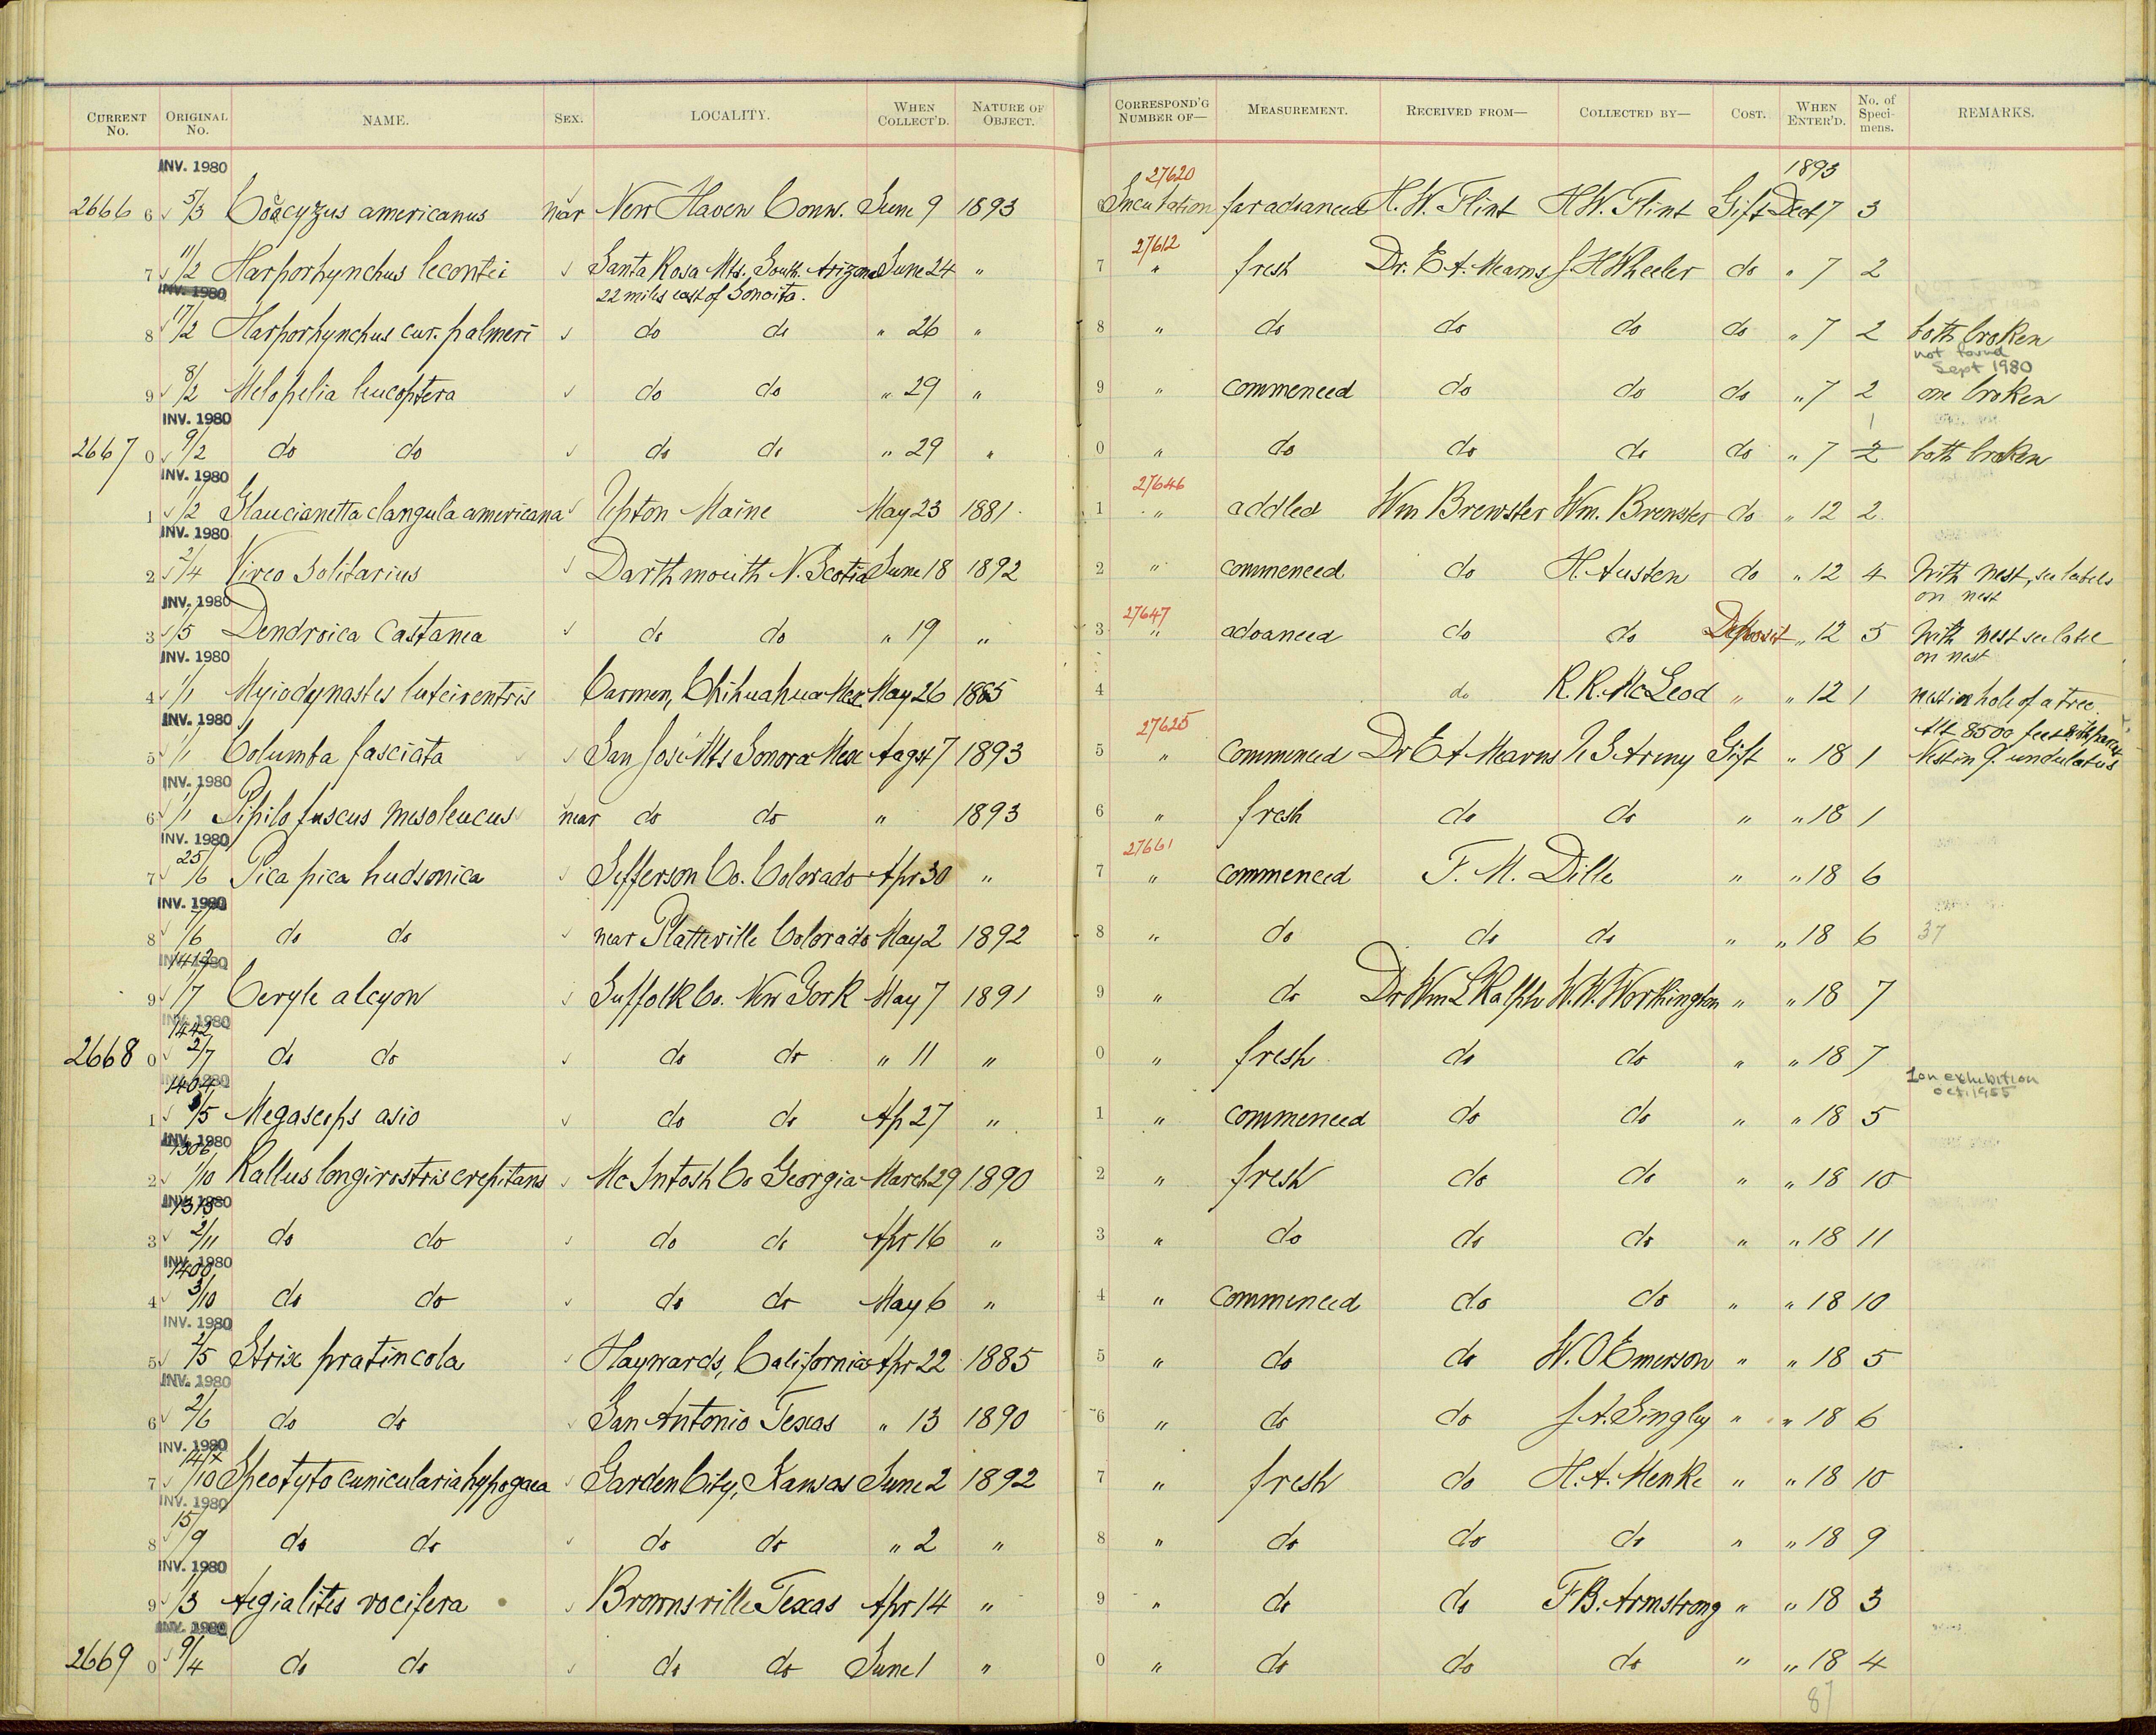 CURRENT No. ORIGINAL No. NAME. SEX. LOCALITY. WHEN COLLECT'D. NATURE OF OBJECT. CORRESPOND'G NUMBER OF— MEASUREMENT. RECEIVED FROM— COLLECTED BY— COST. WHEN ENTER'D. No. of Specimens. REMARKS.
INV. 1980 27620 1893
2666 6 5/3 Coccyzus americanus near New Haven Conn. June 9 1893 Incubation far advanced H. W. Flint H W. Flint Gift Dec 7 3
27612
7 11/2 Harporhynchus lecontei Santa Rosa Mts. South. Arizona June 24 " 7 " fresh Dr. E A. Mearns J H Wheeler do " 7 2
INV. 1980 22 miles east of Sonoita.
8 17/2 Harporhynchus cur. palmeri do do " 26 " 8 " do do do do " 7 2 both broken
not found Sept 1980
9 8/2 Melopelia leucoptera do do " 29 " 9 " commenced do do do " 7 2 one broken
INV. 1980 1
2667 0 9/2 do do do do " 29 " 0 " do do do do " 7 2 both broken
INV. 1980 27646
1 1/2 Glaucianetta clangula americana Upton Maine May 23 1881 1 " addled Wm Brewster Wm. Brewster do " 12 2
INV. 1980
2 2/4 Vireo solitarius Darthmouth N. Scotia June 18 1892 2 " commenced do H. Austen do " 12 4 With nest, see labels
on nest
INV. 1980 27647
3 1/5 Dendroica castanea do do " 19 " 3 " advanced do do Deposit " 12 5 With nest see label
on nest
INV. 1980
4 1/1 Myiodynastes luteiventris Carmen, Chihuahua Mex May 26 1885 4 do R. R. McLeod " " 12 1 nest in hole of a tree.
INV. 1980 27625 Alt 8500 feet
5 1/1 Columba fasciata San José Mts Sonora Mex Augst 7 1893 5 " Commenced Dr E A Mearns U S Army Gift " 18 1 Nest in Q. undulatus
INV. 1980
6 1/1 Pipilo fuscus mesoleucus near do do " 1893 6 " fresh do do " " 18 1
INV. 1980 27661
7 25/6 Pica pica hudsonica Jefferson Co. Colorado Apr 30 " 7 " commenced F. M. Dille " " 18 6
INV. 1980
8 7/6 do do near Platteville Colorado May 2 1892 8 " do do do " " 18 6 37
INV. 1980
9 1/7 Ceryle alcyon Suffolk Co. New York May 7 1891 9 " do Dr Wm L Ralph W. W. Worthington " " 18 7
INV. 1980 1442
2668 0 2/7 do do do do " 11 " 0 " fresh do do " " 18 7
INV. 1980 1404 1 on exhibition oct. 1955
1 3/5 Megascops asio do do Ap 27 " 1 " commenced do do " " 18 5
INV. 1980 1306
2 1/10 Rallus longirostris crepitans McIntosh Co Georgia March 29 1890 2 " fresh do do " " 18 10
INV. 1980
3 2/11 do do do do Apr 16 " 3 " do do do " " 18 11
INV. 1980 1400
4 3/10 do do do do May 6 " 4 " commenced do do " " 18 10
INV. 1980
5 2/5 Strix pratincola Haywards, California Apr 22 1885 5 " do do W. O Emerson " " 18 5
INV. 1980
6 2/6 do do San Antonio Texas " 13 1890 6 " do do J A. Singley " " 18 6
INV. 1980
7 14/10 Speotyto cunicularia hypogaea Garden City, Kansas June 2 1892 7 " fresh do H. A. Menke " " 18 10
INV. 1980
8 15/9 do do do do " 2 " 8 " do do do " " 18 9
INV. 1980
9 1/3 Aegialites vocifera Brownsville Texas Apr 14 " 9 " do do F B. Armstrong " " 18 3
INV. 1980
2669 0 9/4 do do do do June 1 " 0 " do do do " " 18 4
87